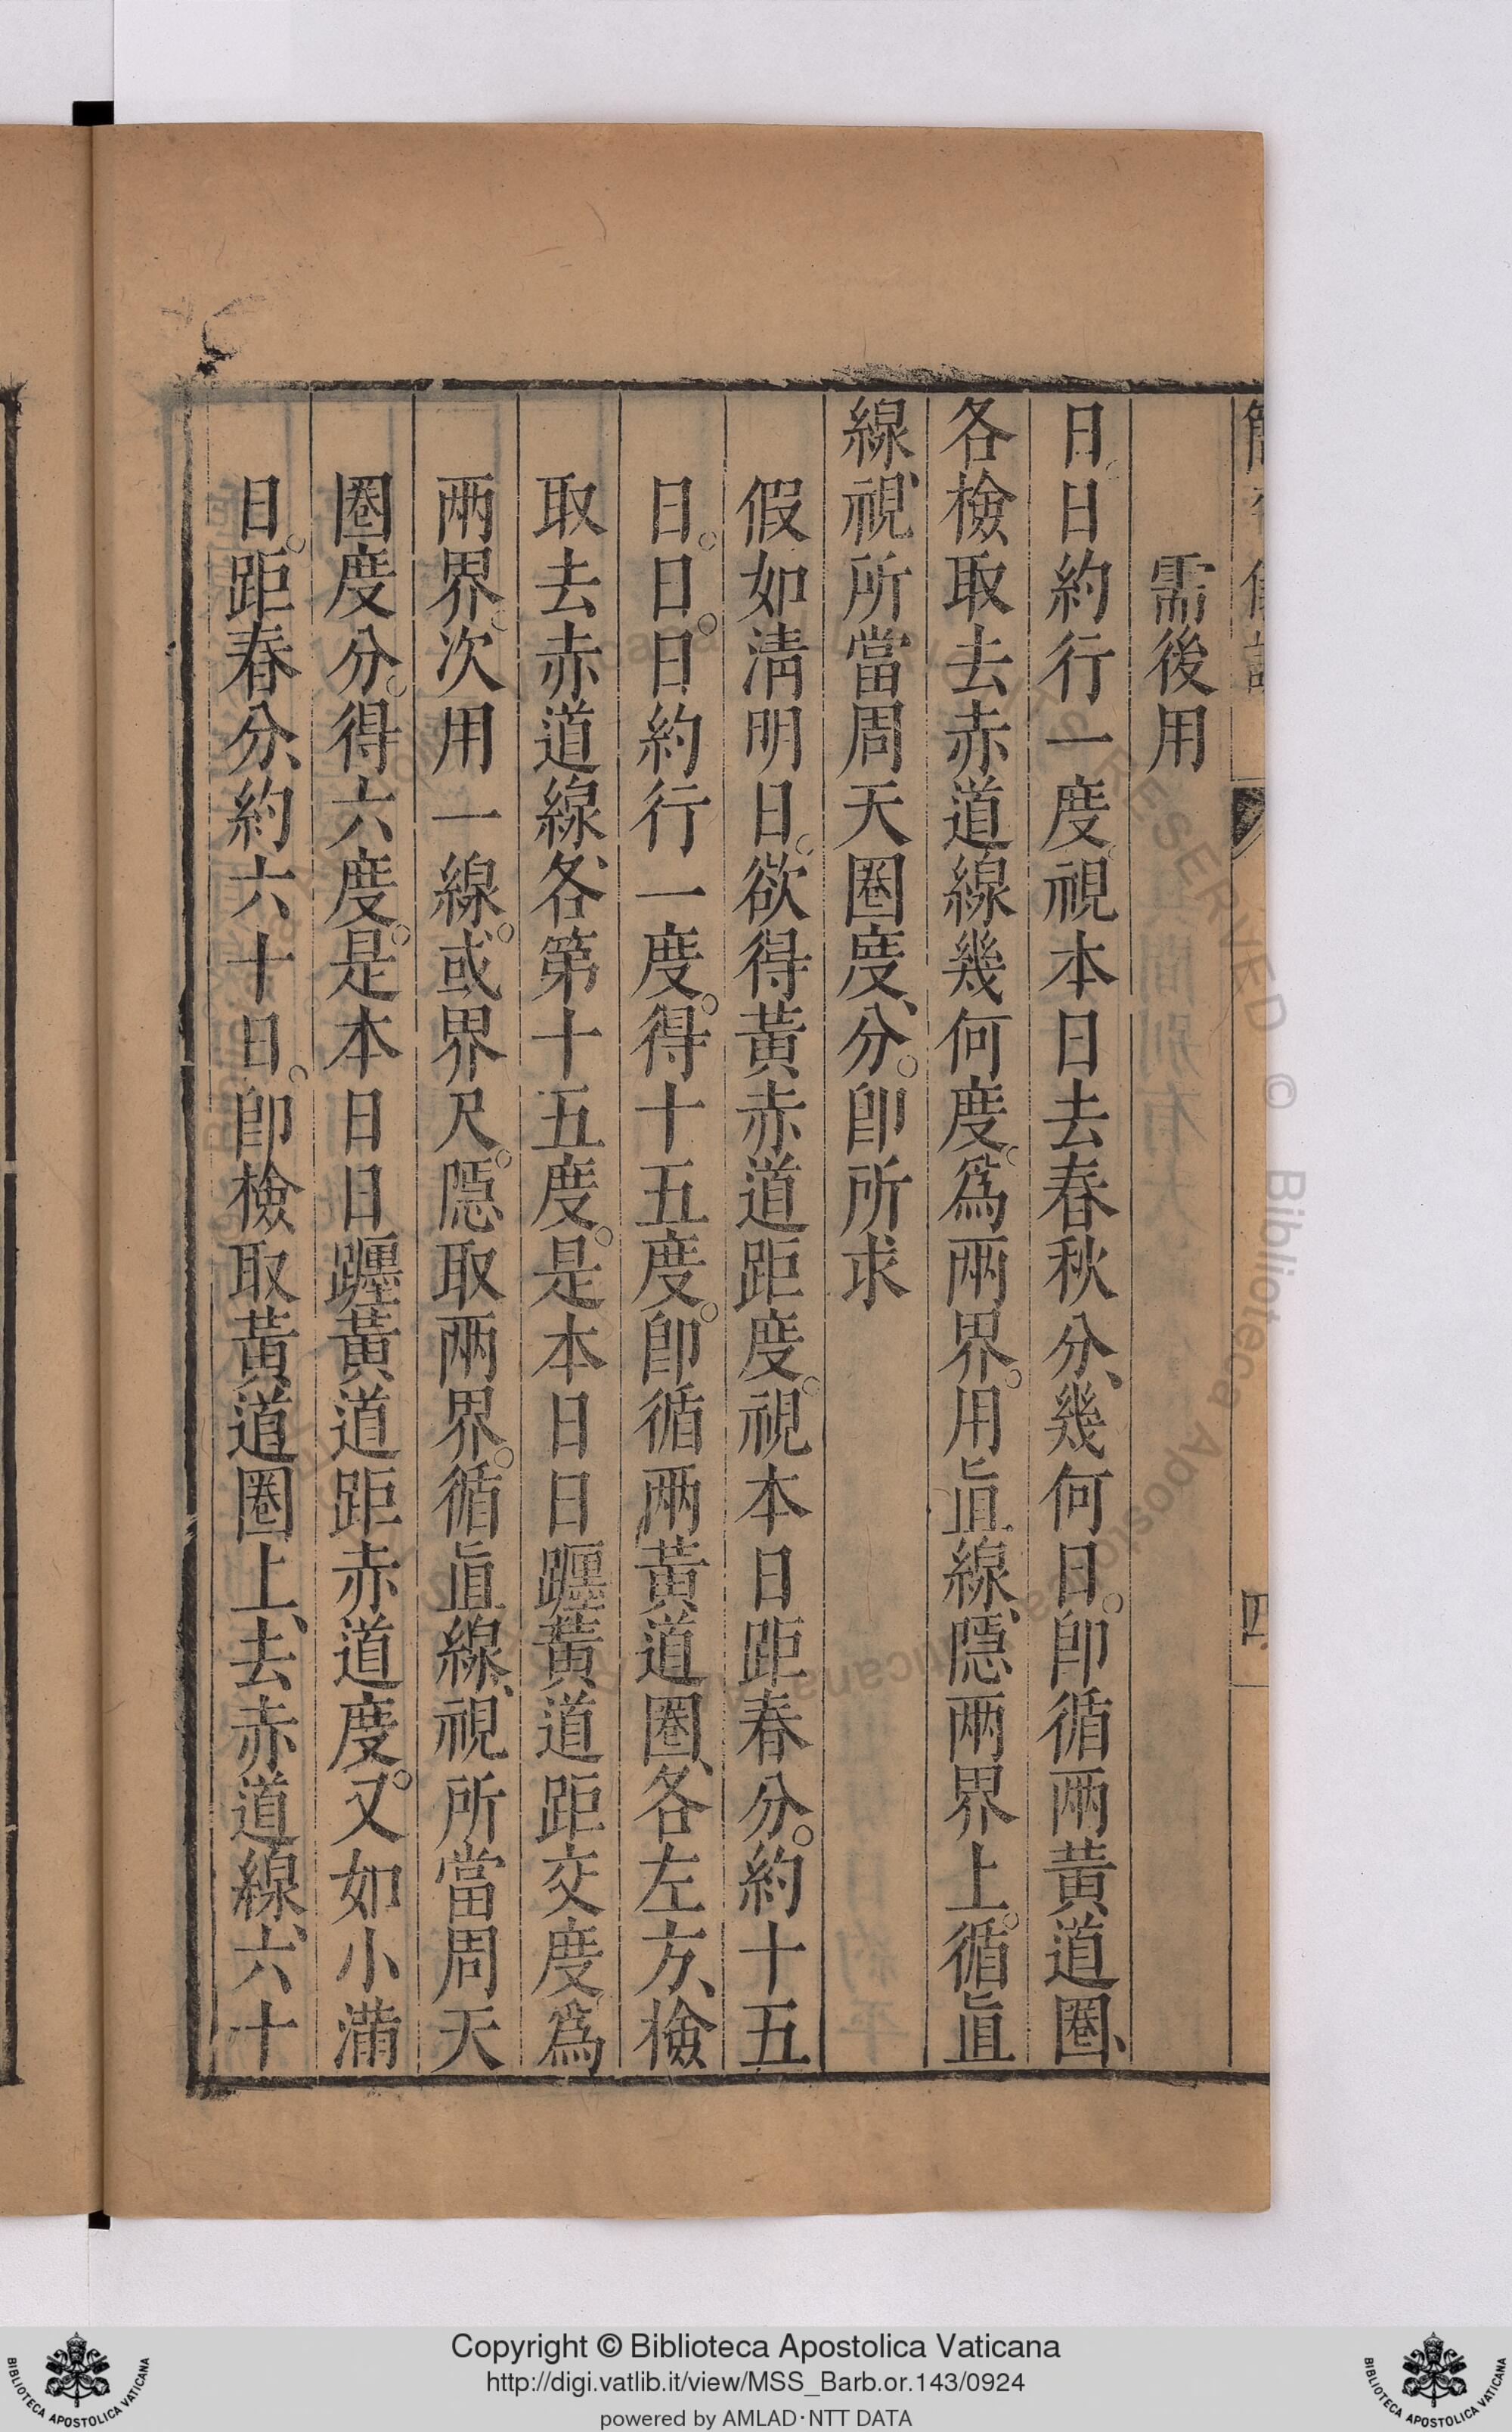 需後用
日。日約行一度。視本日去春秋分、幾何日。卽循兩黃道圈、
各檢取去赤道線幾何度。爲兩界。用直線、隱兩界上。循直
線、視所當周天圈度、分。卽所求
假如淸明日。欲得黃赤道距度。視本日距春分。約十五
日。日。日約行一度。得十五度。卽循兩黃道圈、各左方、檢
取去赤道線、各第十五度。是本日日躔黃道距交度爲
兩界。次用一線。或界尺。隱取兩界。循直線、視所當周天
圈度分。得六度。是本日日躔黃道距赤道度。又如小滿
日。距春分、約六十日。卽檢取黃道圈上、去赤道線、六十
四
Copyright © Biblioteca Apostolica Vaticana
http://digi.vatlib.it/view/MSS_Barb.or.143/0924
powered by AMLAD·NTT DATA
BIBLIOTECA APOSTOLICA VATICANA
BIBLIOTECA APOSTOLICA VATICANA